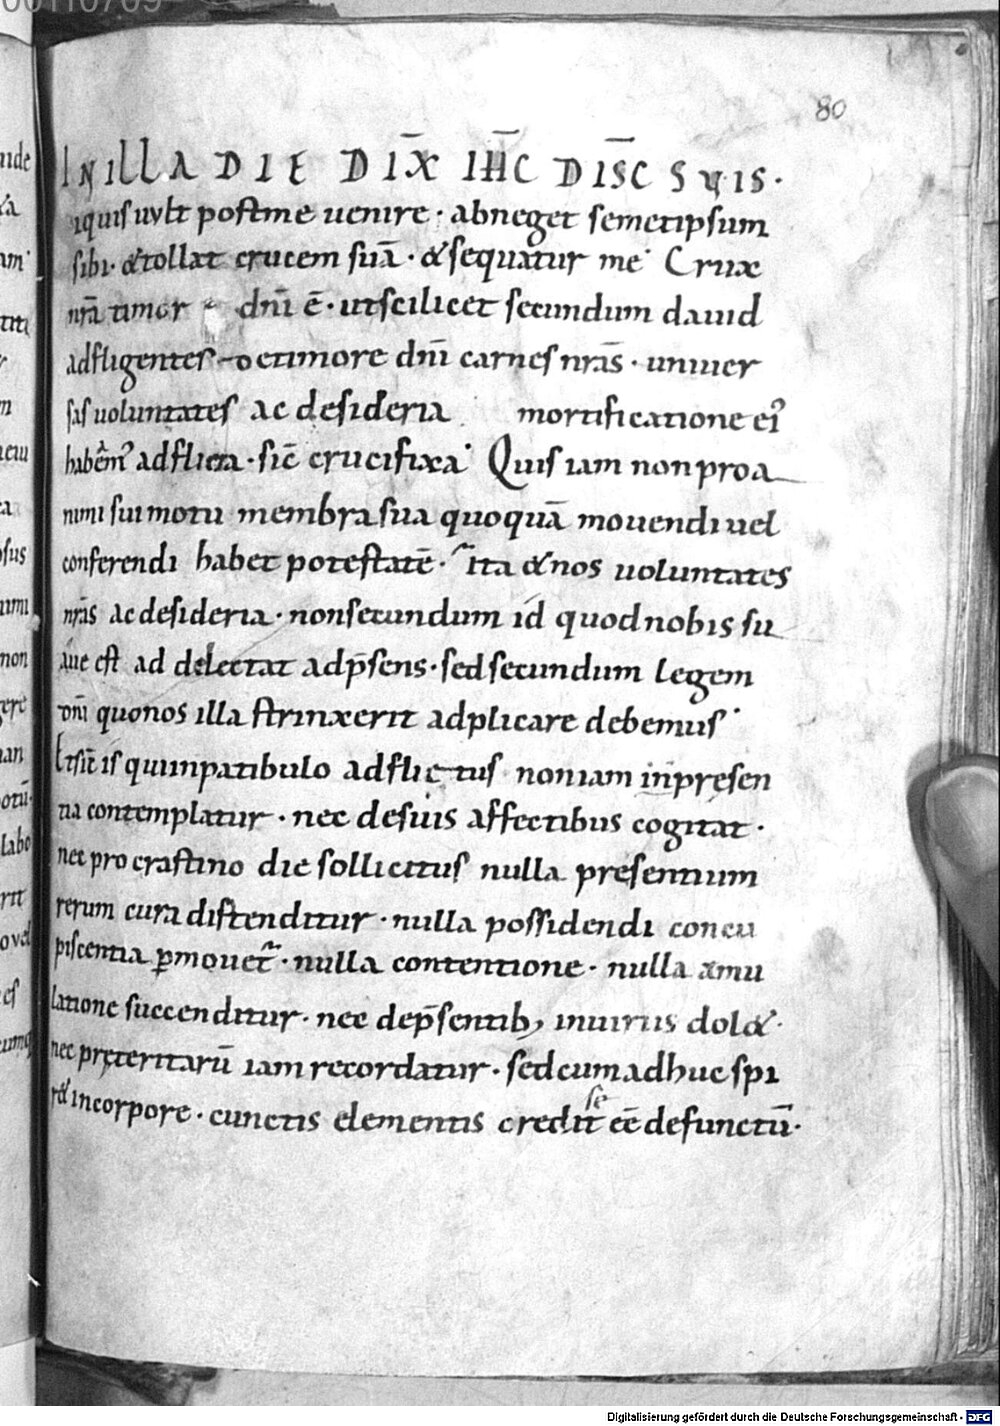 80
IN ILLA DIE DIX̄ IH̄C DIS̄C SUIS·
iquis uult post me uenire· abneget semetipsum
sibi· & tollat crucem suā· & sequatur me· Crux
nrā timor dnī ē· ut scilicet secundum dauid
adfligentes timore dnī carnes nrās· uniuer
sas uoluntates ac desideria mortificatione ei
habem adflicta· sic̄ crucifixa· Quis iam non pro a
nimi sui motu membra sua quoquā mouendi uel
conferendi habet potestatē· ita & nos uoluntates
nrās ac desideria· non secundum id quod nobis su
aue est ad delectat ad p̄sens· sed secundum legem
dnī quo nos illa strinxerit adplicare debemus·
Et sic̄ is qui in patibulo adflictus non iam in presen
tia contemplatur· nec de suis affectibus cogitat·
nec pro crastino die sollicitus nulla presentium
rerum cura distenditur· nulla possidendi concu
piscentia ꝑmouet· nulla contentione· nulla amu
latione succenditur· nec de p̄sentib; iniuriis dol&·
nec pręteritarū iam recordatur· sed cum adhuc spi
r& in corpore· cunctis elementis credit se eē defunctū·
Digitalisierung gefördert durch die Deutsche Forschungsgemeinschaft - DFG